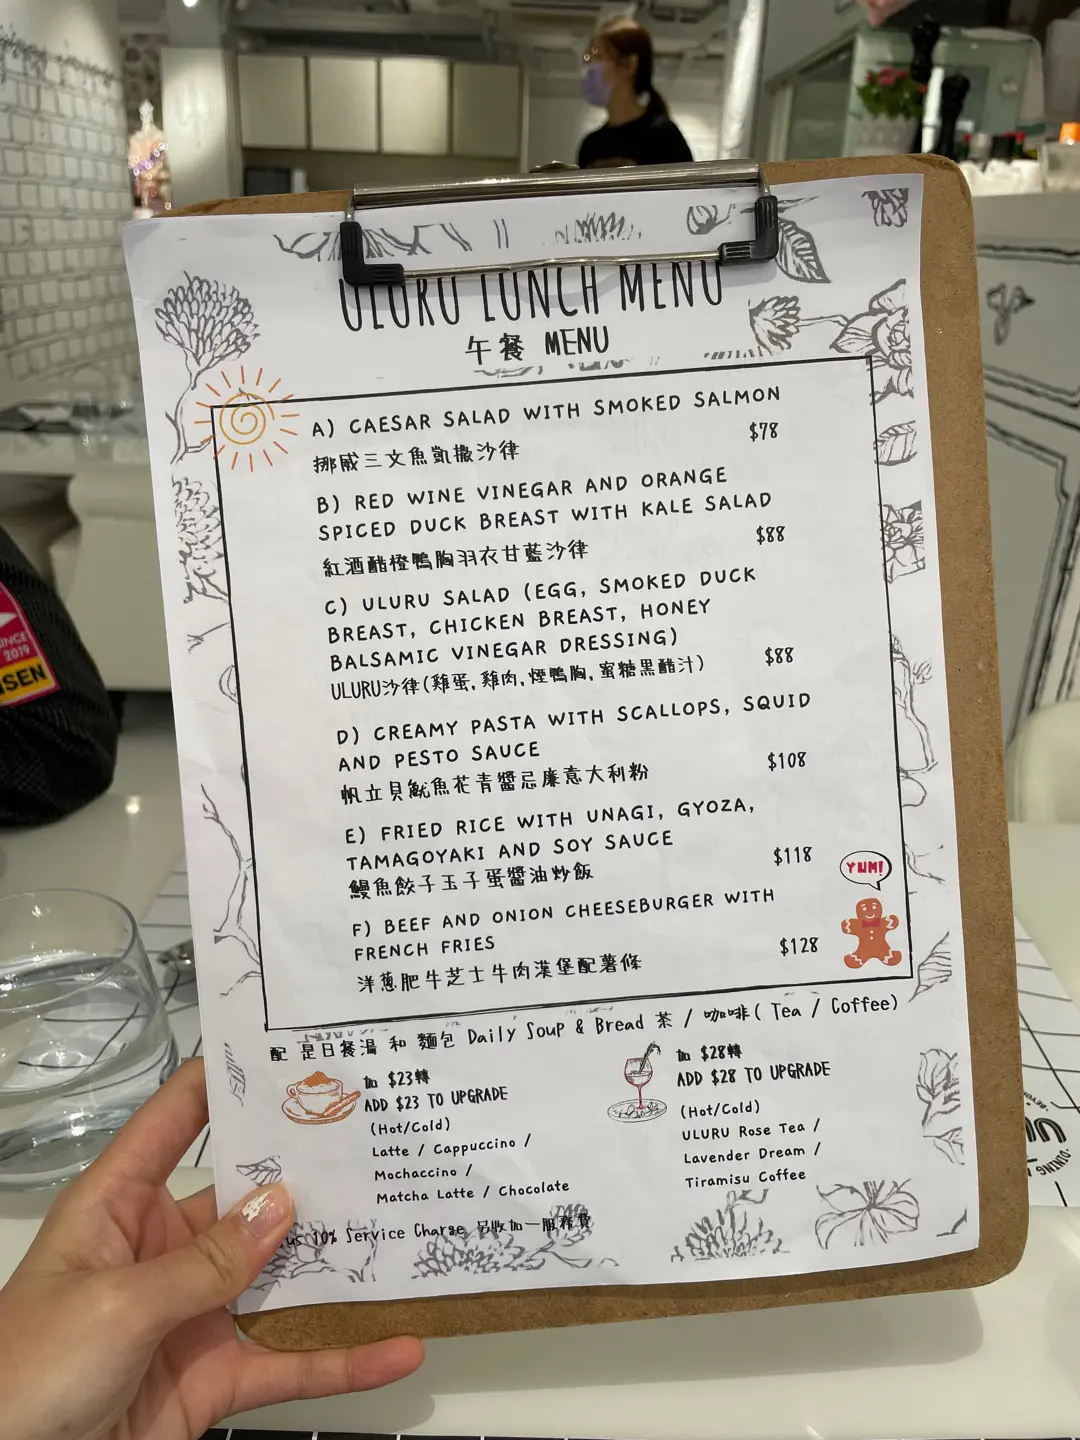 ULURU LUNCH MENU
午餐 MENU
A) CAESAR SALAD WITH SMOKED SALMON
$78
挪威三文魚凱撒沙律
B) RED WINE VINEGAR AND ORANGE
SPICED DUCK BREAST WITH KALE SALAD
$88
紅酒醋橙鴨胸羽衣甘藍沙律
C) ULURU SALAD (EGG, SMOKED DUCK
BREAST, CHICKEN BREAST, HONEY
BALSAMIC VINEGAR DRESSING)
$88
ULURU沙律(雞蛋, 雞肉, 煙鴨胸, 蜜糖黑醋汁)
D) CREAMY PASTA WITH SCALLOPS, SQUID
AND PESTO SAUCE
$108
帆立貝魷魚花青醬忌廉意大利粉
E) FRIED RICE WITH UNAGI, GYOZA,
TAMAGOYAKI AND SOY SAUCE
$118
鰻魚餃子玉子蛋醬油炒飯
F) BEEF AND ONION CHEESEBURGER WITH
FRENCH FRIES
$128
洋蔥肥牛芝士牛肉漢堡配薯條
YUM!
配 是日餐湯 和 麵包 Daily Soup & Bread 茶 / 咖啡( Tea / Coffee)
加 $23轉
ADD $23 TO UPGRADE
(Hot/Cold)
Latte / Cappuccino /
Mochaccino /
Matcha Latte / Chocolate
加 $28轉
ADD $28 TO UPGRADE
(Hot/Cold)
ULURU Rose Tea /
Lavender Dream /
Tiramisu Coffee
10% Service Charge 另收加一服務費
SINCE
2019